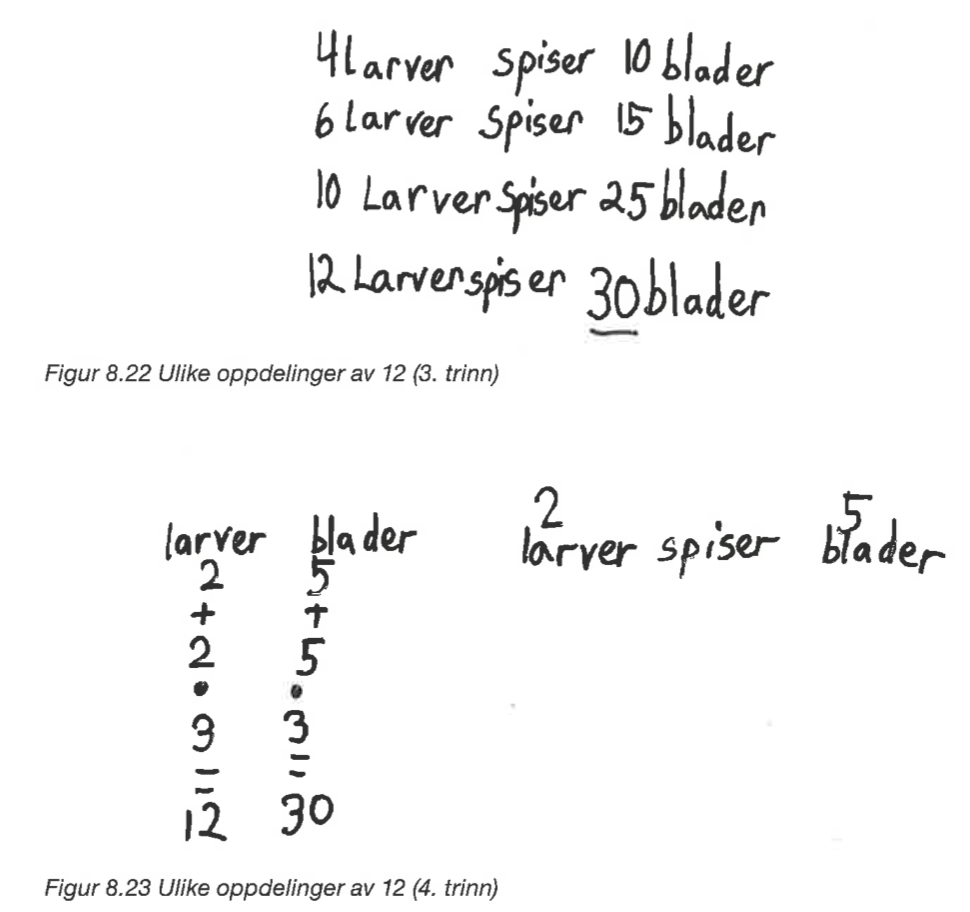 4 larver spiser 10 blader
6 larver spiser 15 blader
10 Larver Spiser 25 blader
12 Larver spiser 30 blader
Figur 8.22 Ulike oppdelinger av 12 (3. trinn)
larver blader
2 5
+ +
2 5
• •
3 3
= =
12 30
2 5
larver spiser blader
Figur 8.23 Ulike oppdelinger av 12 (4. trinn)